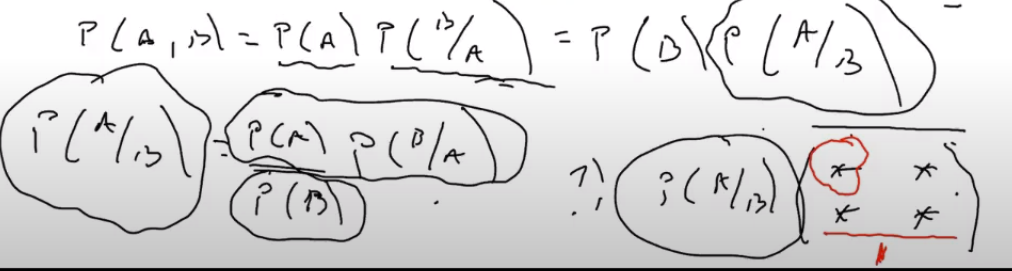 P(A,B) = P(A) P(B/A) = P(B) P(A/B)
P(A/B) = P(A) P(B/A)
P(B)
P(A/B)
* *
* *